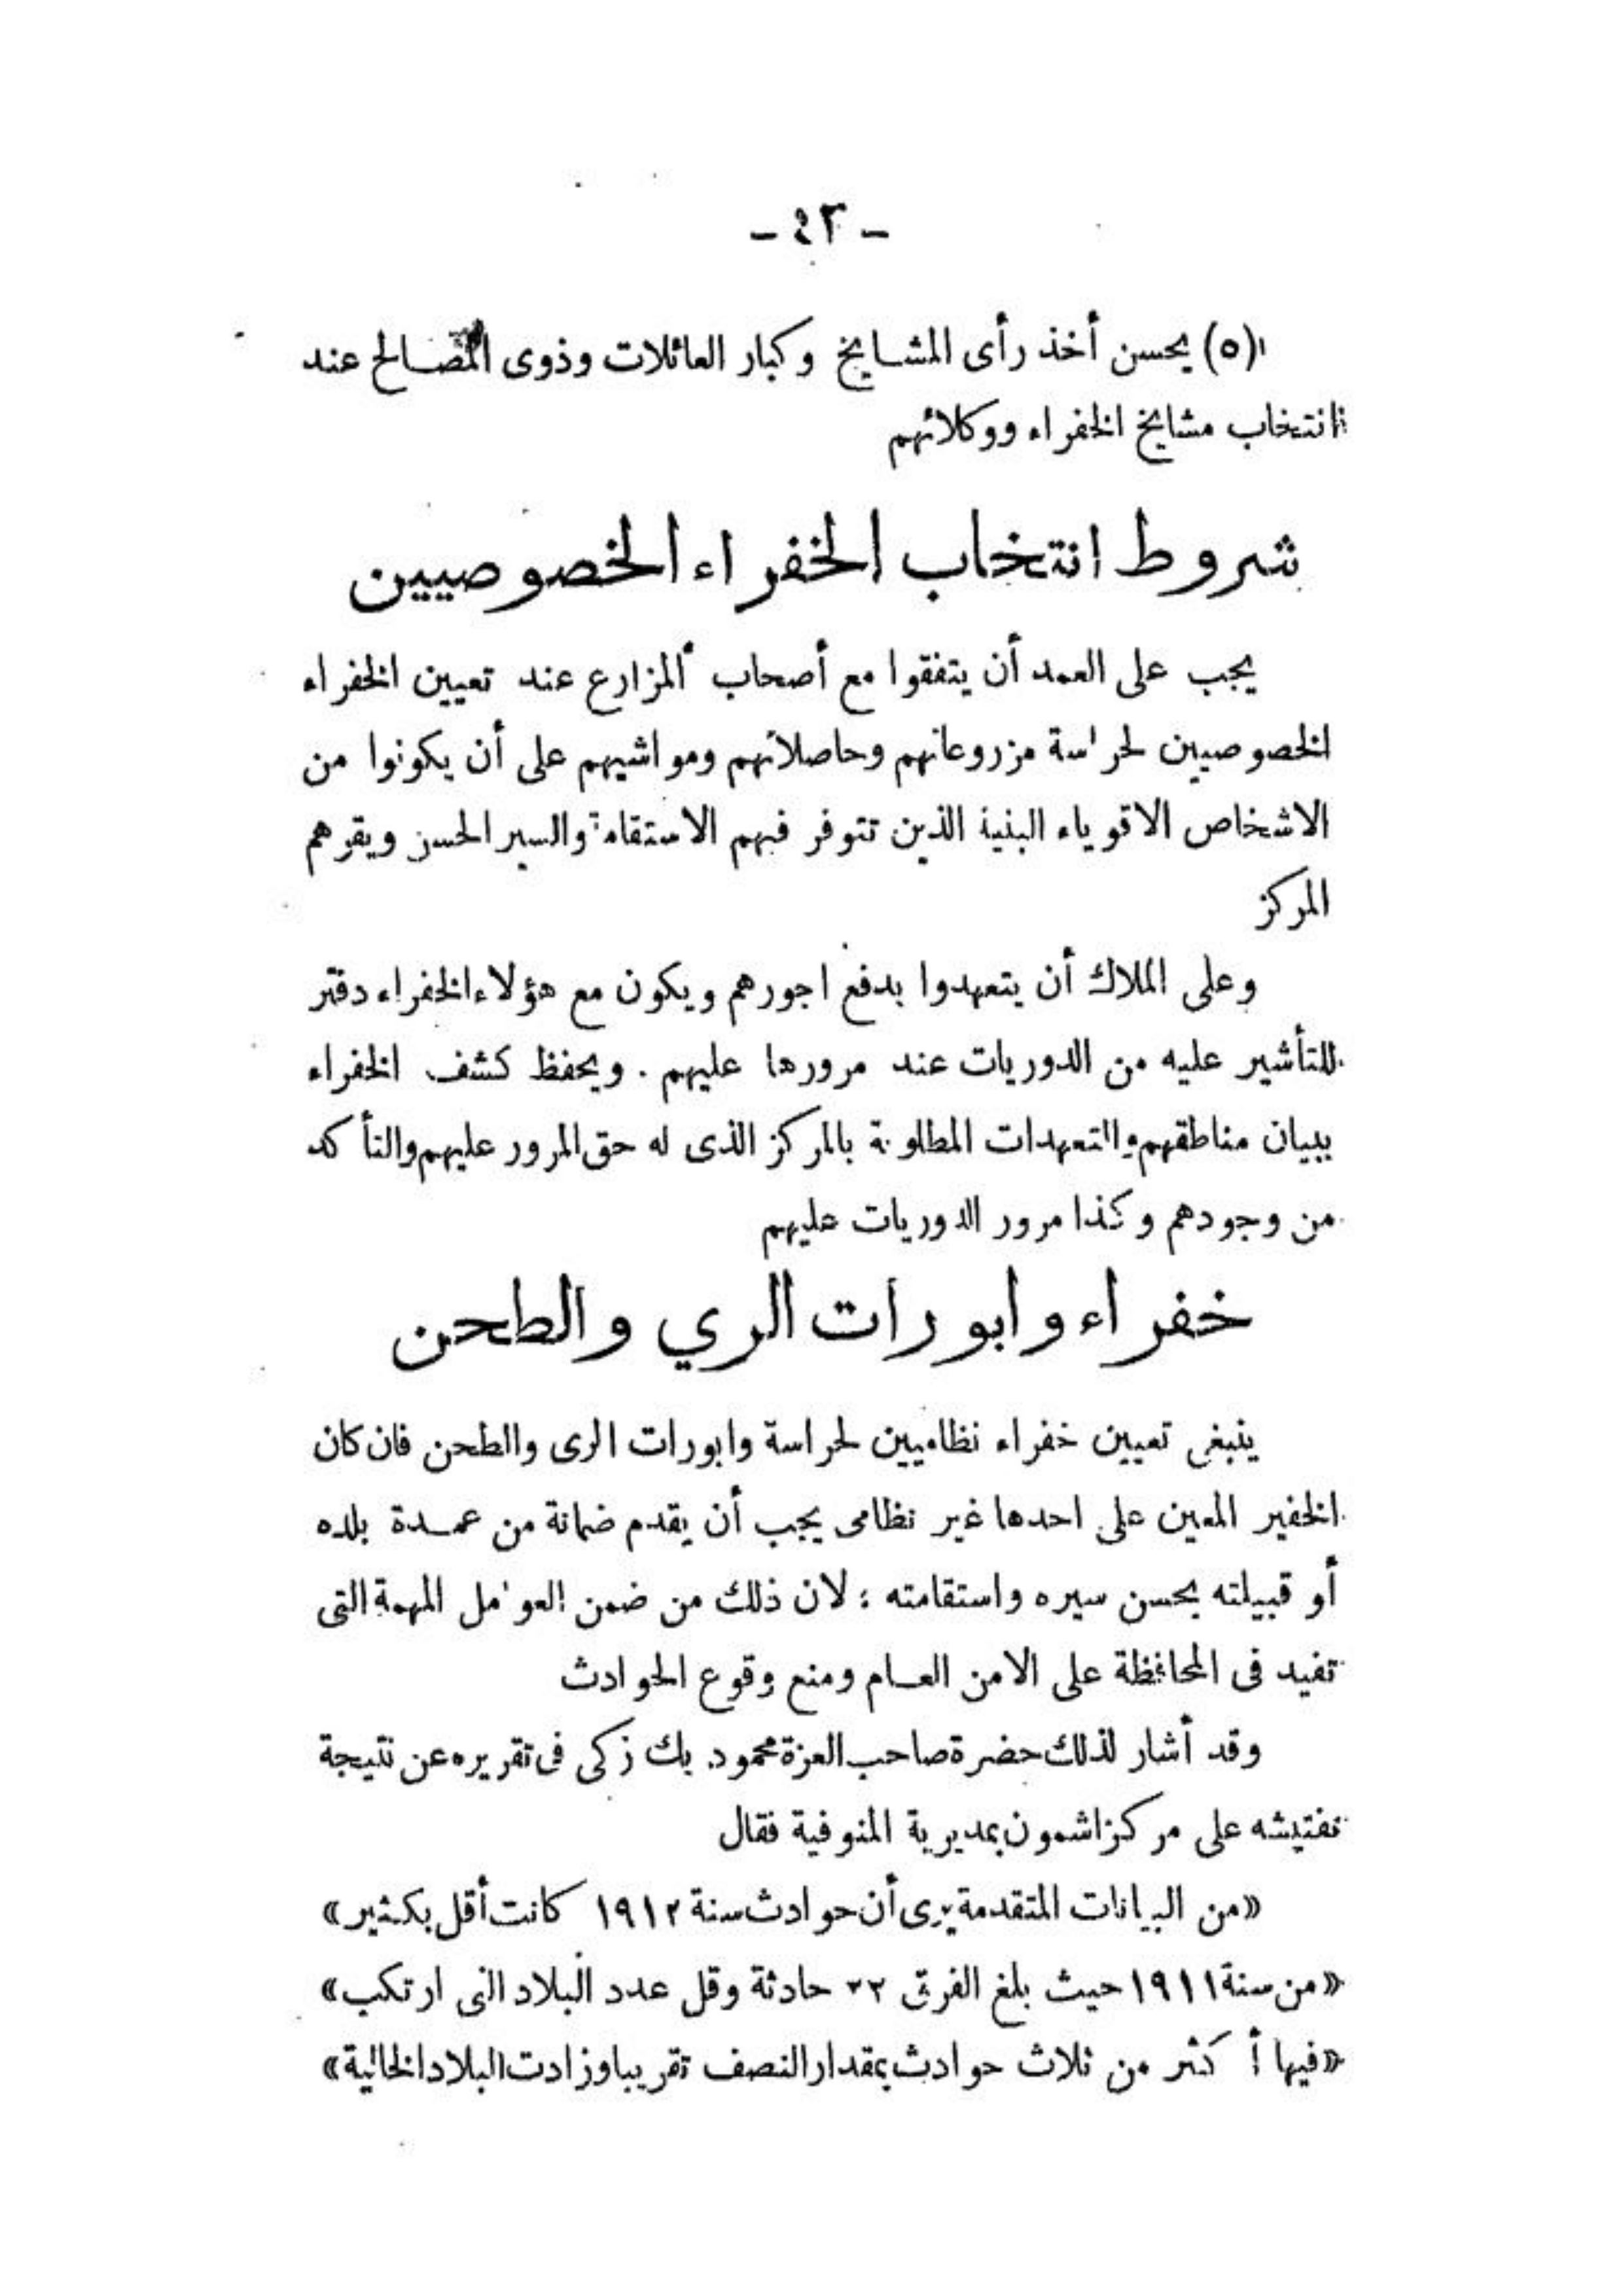 - ٤٣ -
(٥) يحسن أخذ رأى المشايخ وكبار العائلات وذوى المصالح عند
انتخاب مشايخ الخفراء ووكلائهم
شروط انتخاب الخفراء الخصوصيين
يجب على العمد أن يتفقوا مع أصحاب المزارع عند تعيين الخفراء
الخصوصيين لحراسة مزروعاتهم وحاصلاتهم ومواشيهم على أن يكونوا من
الاشخاص الاقوياء البنية الذين تتوفر فيهم الاستقامة والسير الحسن ويقرهم
المركز
وعلى الملاك أن يتعهدوا بدفع اجورهم ويكون مع هؤلاء الخفراء دفتر
للتأشير عليه من الدوريات عند مرورها عليهم . ويحفظ كشف الخفراء
ببيان مناطقهم والتعهدات المطلوبة بالمركز الذى له حق المرور عليهم والتأكد
من وجودهم وكذا مرور الدوريات عليهم
خفراء وابورات الري والطحن
ينبغى تعيين خفراء نظاميين لحراسة وابورات الرى والطحن فان كان
الخفير المعين على احدها غير نظامى يجب أن يقدم ضمانة من عمدة بلده
أو قبيلته بحسن سيره واستقامته ؛ لان ذلك من ضمن العوامل المهمة التى
تفيد فى المحافظة على الامن العام ومنع وقوع الحوادث
وقد أشار لذلك حضرة صاحب العزة محمود بك زكى فى تقريره عن نتيجة
تفتيشه على مركز اشمون بمديرية المنوفية فقال
«من البيانات المتقدمة يرى أن حوادث سنة ١٩١٢ كانت أقل بكثير»
«من سنة ١٩١١ حيث بلغ الفرق حادثة وقل عدد البلاد التى ارتكب»
«فيها أكثر من ثلاث حوادث بمقدار النصف تقريبا وزادت البلاد الخالية»